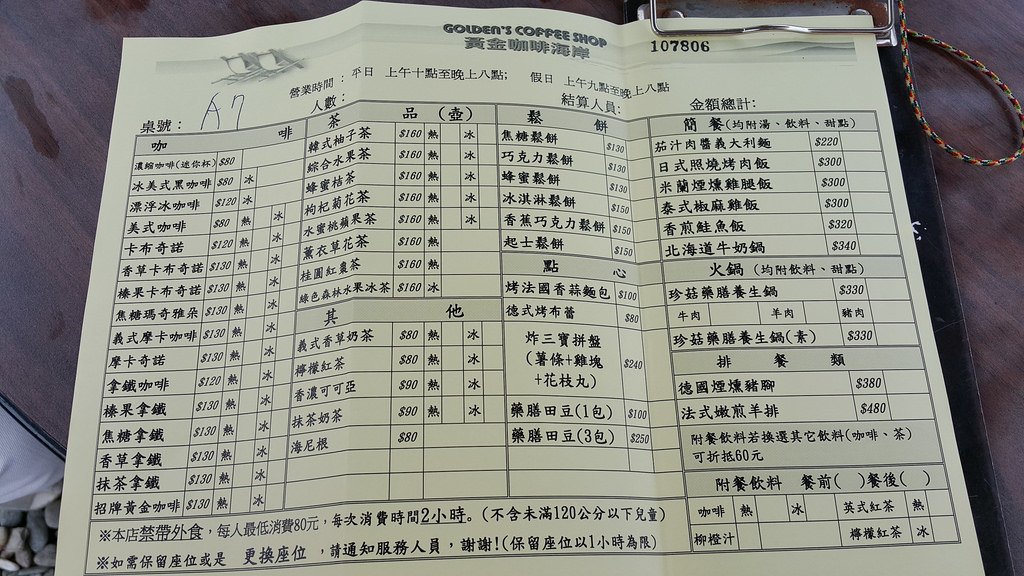 GOLDEN'S COFFEE SHOP
黃金咖啡海岸
107806
營業時間：平日 上午十點至晚上八點; 假日 上午九點至晚上八點
桌號： A7 人數： 結算人員: 金額總計:
咖 啡
濃縮咖啡(迷你杯) $80
冰美式黑咖啡 $80 冰
漂浮冰咖啡 $120 冰
美式咖啡 $80 熱 冰
卡布奇諾 $120 熱 冰
香草卡布奇諾 $130 熱 冰
榛果卡布奇諾 $130 熱 冰
焦糖瑪奇雅朵 $130 熱 冰
義式摩卡咖啡 $130 熱 冰
摩卡奇諾 $130 熱 冰
拿鐵咖啡 $120 熱 冰
榛果拿鐵 $130 熱 冰
焦糖拿鐵 $130 熱 冰
香草拿鐵 $130 熱 冰
抹茶拿鐵 $130 熱 冰
招牌黃金咖啡 $130 熱 冰
茶 品 (壺)
韓式柚子茶 $160 熱 冰
綜合水果茶 $160 熱 冰
蜂蜜桔茶 $160 熱 冰
枸杞菊花茶 $160 熱 冰
水蜜桃蘋果茶 $160 熱 冰
薰衣草花茶 $160 熱
桂圓紅棗茶 $160 熱
綠色森林水果冰茶 $160 冰
其 他
義式香草奶茶 $80 熱 冰
檸檬紅茶 $80 熱 冰
香濃可可亞 $90 熱 冰
抹茶奶茶 $90 熱 冰
海尼根 $80
鬆 餅
焦糖鬆餅 $130
巧克力鬆餅 $130
蜂蜜鬆餅 $130
冰淇淋鬆餅 $150
香蕉巧克力鬆餅 $150
起士鬆餅 $150
點 心
烤法國香蒜麵包 $100
德式烤布蕾 $80
炸三寶拼盤
(薯條+雞塊
+花枝丸) $240
藥膳田豆(1包) $100
藥膳田豆(3包) $250
簡 餐(均附湯、飲料、甜點)
茄汁肉醬義大利麵 $220
日式照燒烤肉飯 $300
米蘭煙燻雞腿飯 $300
泰式椒麻雞飯 $300
香煎鮭魚飯 $320
北海道牛奶鍋 $340
火鍋 (均附飲料、甜點)
珍菇藥膳養生鍋 $330
牛肉 羊肉 豬肉
珍菇藥膳養生鍋(素) $330
排 餐 類
德國煙燻豬腳 $380
法式嫩煎羊排 $480
附餐飲料若換選其它飲料(咖啡、茶)
可折抵60元
附餐飲料 餐前( )餐後( )
咖啡 熱 冰 英式紅茶 熱
柳橙汁 檸檬紅茶 冰
※本店禁帶外食，每人最低消費80元，每次消費時間2小時。(不含未滿120公分以下兒童)
※如需保留座位或是 更換座位 ，請通知服務人員，謝謝!(保留座位以1小時為限)